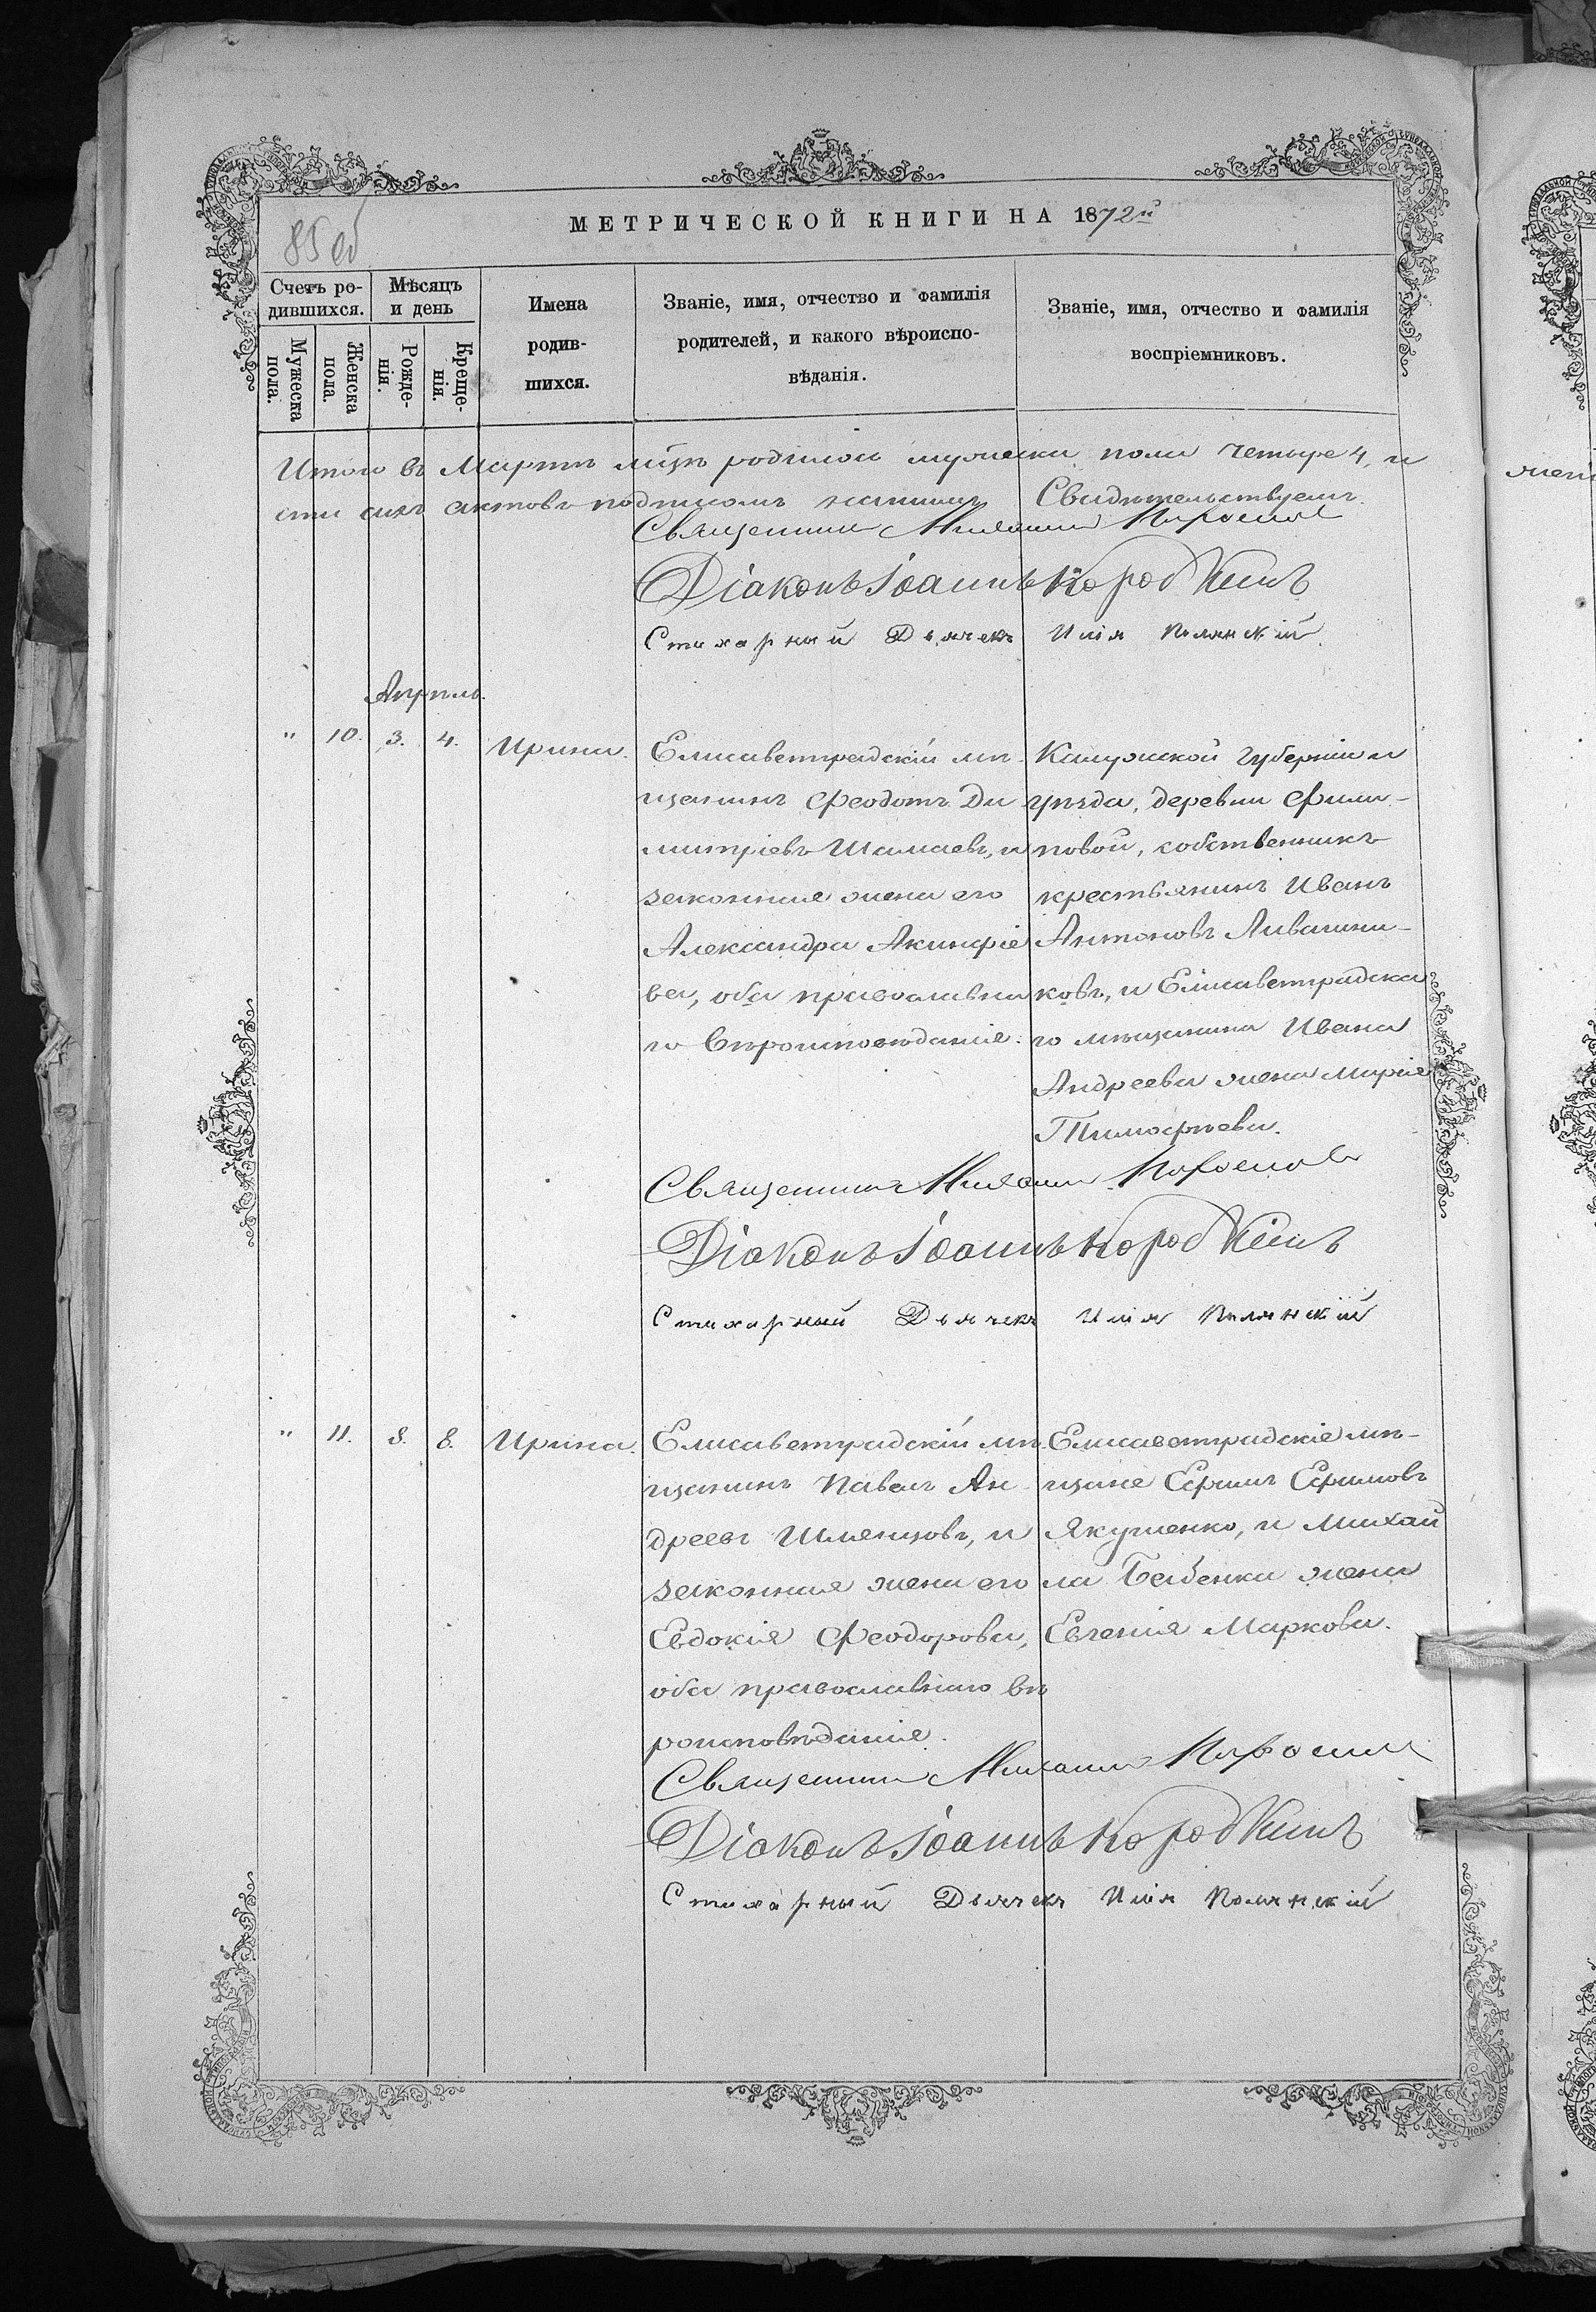 85 об
МЕТРИЧЕСКОЙ КНИГИ НА 1872й
Счетъ ро-
дившихся.
Мужеска
пола.
Женска
пола.
Мѣсяцъ
и день
Рожде-
нія.
Креще-
нія.
Имена
родив-
шихся.
Званіе, имя, отчество и фамилія
родителей, и какого вѣроиспо-
вѣданія.
Званіе, имя, отчество и фамилія
воспріемниковъ.
Итого въ Мартѣ мѣсе родилось мужеска пола четыре 4, и
сти сихъ актовъ подписомъ нашимъ Свидѣтельствуемъ.
Священникъ Михаилъ
Діаконъ Іоаннъ Коробкинъ
Стихарный Дьячекъ Илія Полянскій.
Апрѣль.
" 10. 3. 4. Ирина.
Елисаветградскій мѣ-
щанинъ Феодотъ Ди
митріевъ Шамаевъ, и
законная жена его
Александра Акинфіе
ва, оба православна
го вѣроисповѣданія.
Калужской губерніи и
уѣзда, деревни Фили-
повой, собственникъ
крестьянинъ Иванъ
Антоновъ
ковъ, и Елисаветградска
го мѣщанина Ивана
Андреева жена Марія
Тимофѣева.
Священникъ Михаилъ
Діаконъ Іоаннъ Коробкинъ
Стихарный Дьячекъ Илія Полянскій
" 11. 8. 8. Ирина.
Елисаветградскій мѣ-
щанинъ Павелъ Ан-
дреевъ Шлянцовъ, и
законная жена его
Евдокія Феодорова,
оба православнаго вѣ
роисповѣданія.
Елисаветградскіе мѣ-
щане Ефимъ Ефимовъ
Якушенко, и Михаи
ла Бабенка жена
Евгенія Маркова.
Священникъ Михаилъ
Діаконъ Іоаннъ Коробкинъ
Стихарный Дьячекъ Илія Полянскій